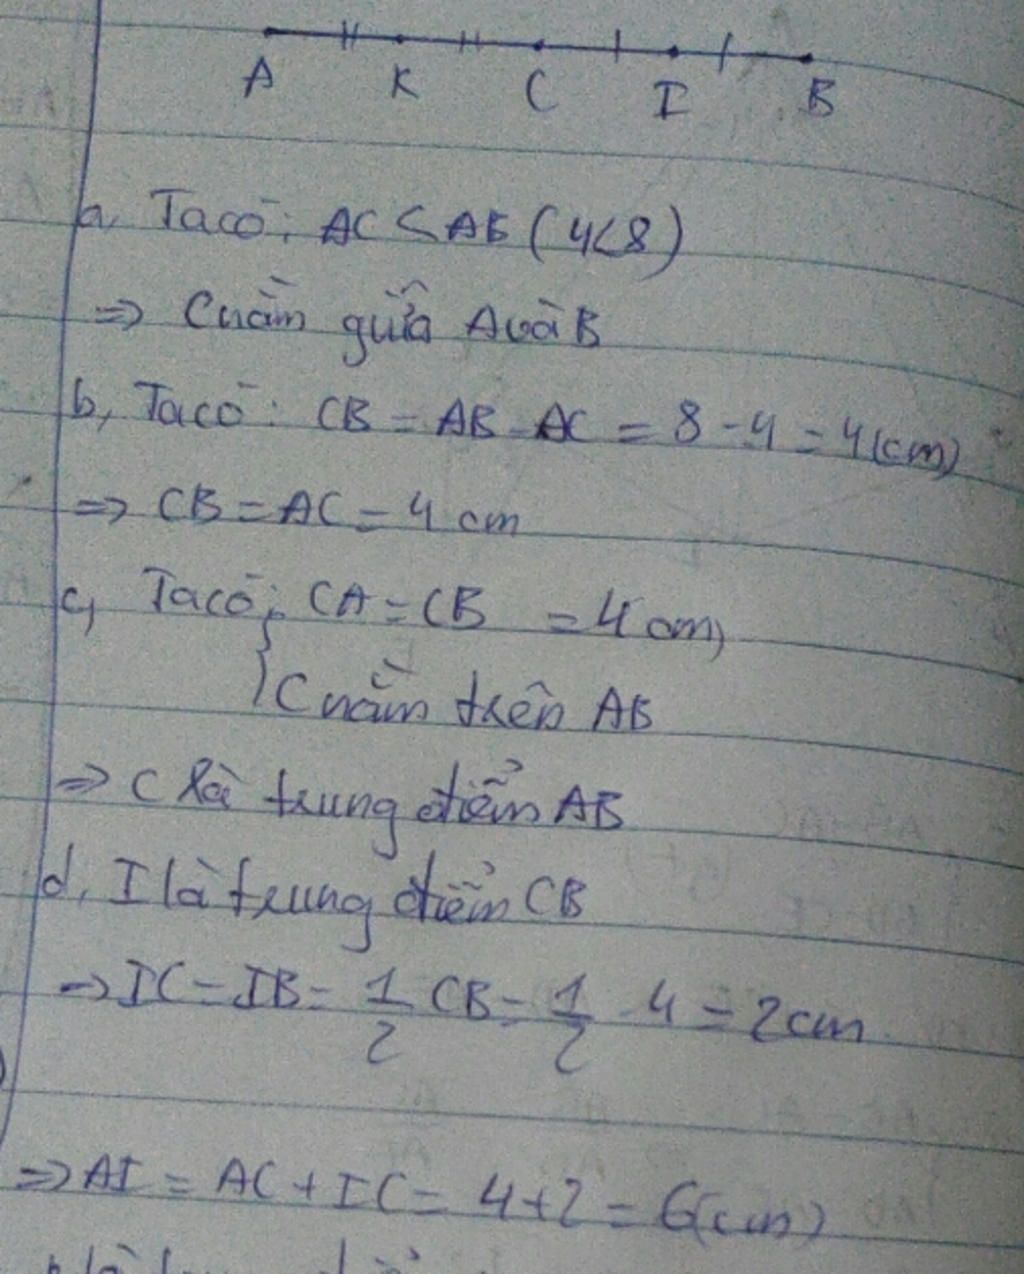 A K C I B
a, Ta có: AC < AB (4<8)
=> C nằm giữa A và B
b, Ta có: CB = AB - AC = 8 - 4 = 4 (cm)
=> CB = AC = 4 cm
c, Ta có: CA = CB = 4 cm
{ C nằm trên AB
=> C là trung điểm AB
d, I là trung điểm CB
=> IC = IB = 1/2 CB = 1/2 . 4 = 2cm
=> AI = AC + IC = 4 + 2 = 6 (cm)